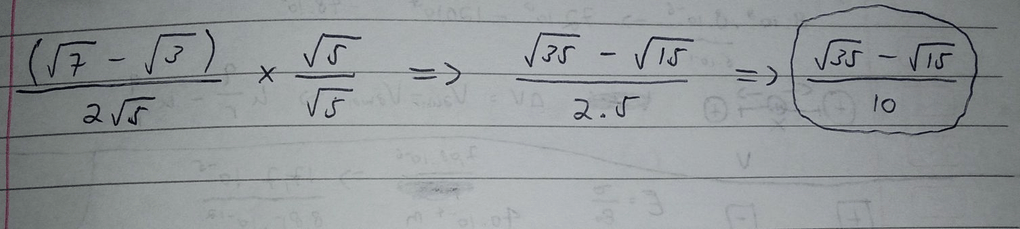 (√7 - √3) / 2√5 × √5 / √5 => √35 - √15 / 2.5 => √35 - √15 / 10